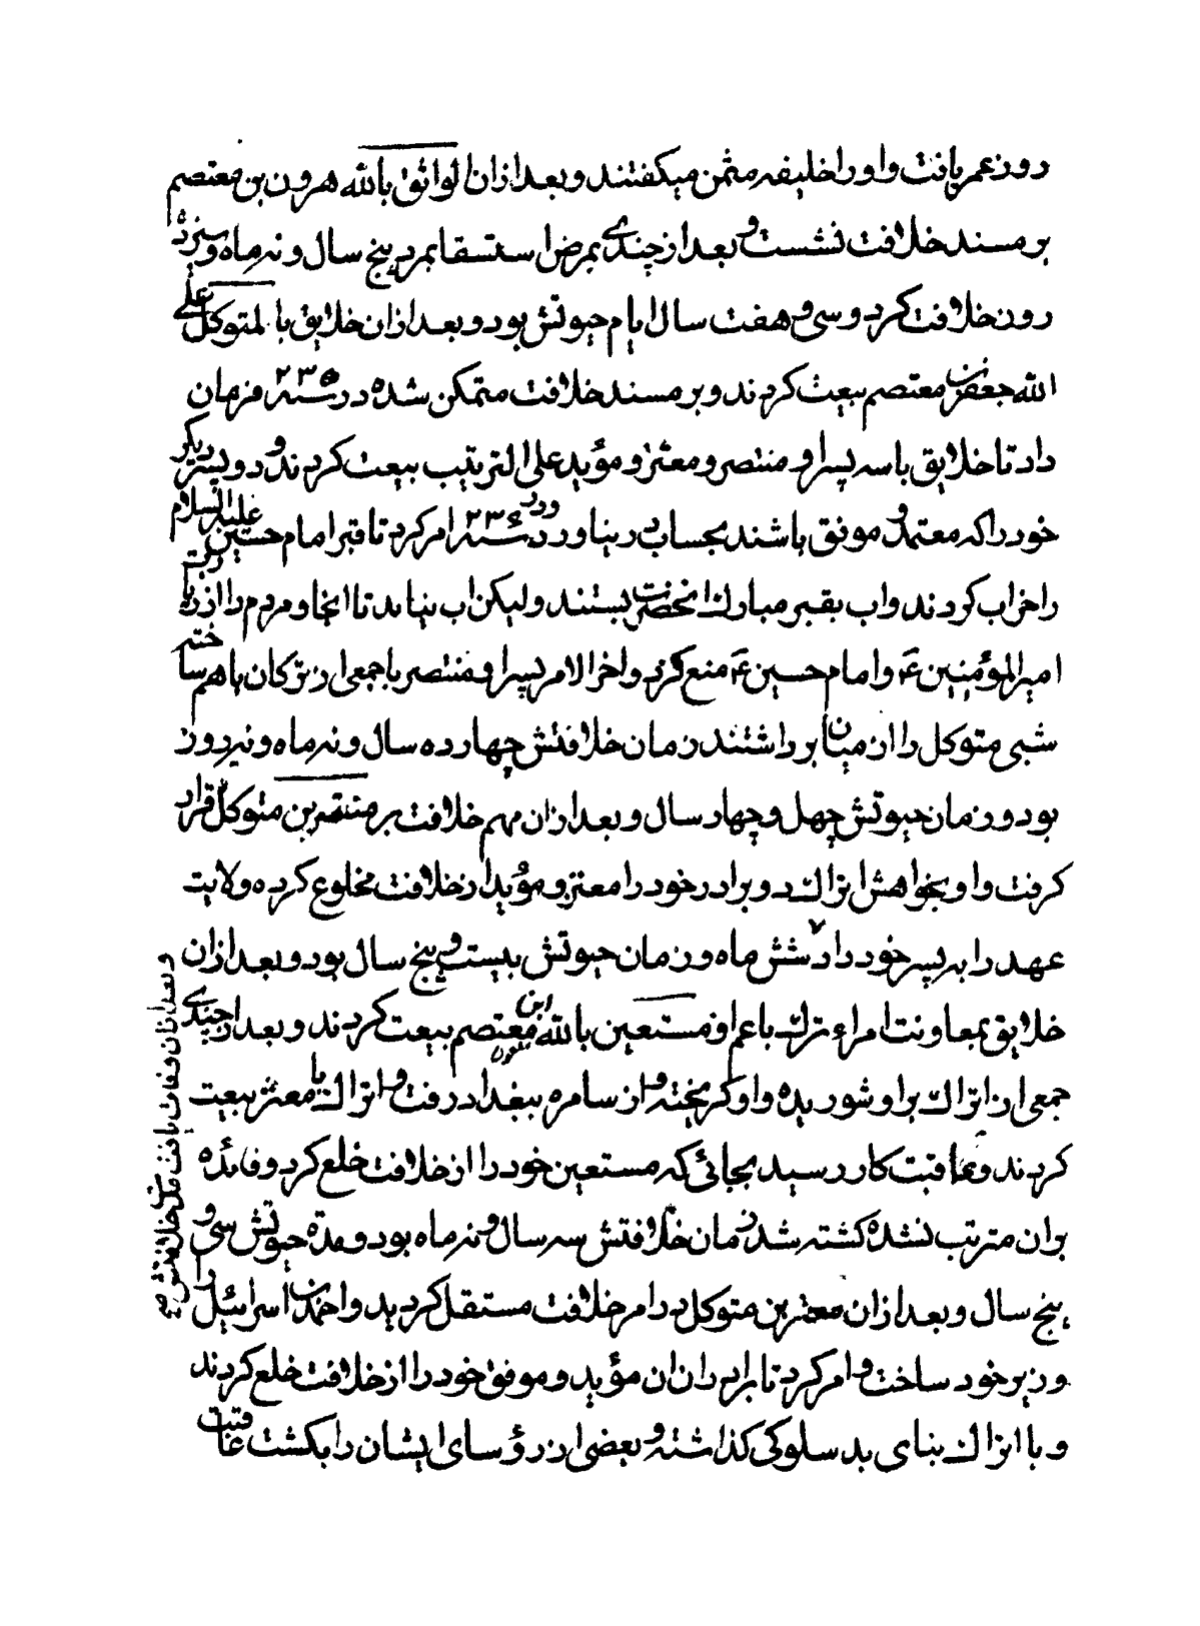 روز عمر یافت و او را خلیفه مثمن میکفتند و بعد ازان الواثق بالله هرون بن معتصم
بر مسند خلافت نشست و بعد از چندی بمرض استسقا بمرد پنج سال و نه ماه و سیزده
روز خلافت کرد و سی و هفت سال ایام حیوتش بود و بعد ازان خلایق با المتوکل علی
الله جعفر بن معتصم بیعت کردند و بر مسند خلافت متمکن شده در سنه ۲۳۵ فرمان
داد تا خلایق با سه پسر او منتصر و معتز و مؤید علی الترتیب بیعت کردند و دو پسر دیکر
خود را که معتمد و موفق باشند بحساب در نیاورد و در سنه ۲۳۶ امر کرد تا قبر امام حسین علیه السلام
را خراب کردند و اب بقبر مبارک انحضرت بستند ولیکن اب نیامد تا انجا و مردم را از زیارت
امیرالمؤمنین ع و امام حسین ع منع کرد و اخر الامر پسر او منتصر با جمعی از ترکان با هم ساخته
شبی متوکل را از میان برداشتند زمان خلافتش چهارده سال و نه ماه و نه روز
بود و زمان حیوتش چهل و چهار سال و بعد ازان مهم خلافت بر منتصر بن متوکل قرار
کرفت و او بخواهش اتراک دو برادر خود را معتز و مؤید از خلافت مخلوع کرده ولایت
عهد را به پسر خود داد شش ماه و زمان حیوتش بیست و پنج سال بود و بعد ازان
خلایق بمعاونت امراء ترک با عم او مستعین بالله ابن معتصم بیعت کردند و بعد از چندی
جمعی از اتراک بر او شوریده و او کریخته و از سامره ببغداد رفت و اتراک با معتز بیعت
کردند و عاقبت کار رسید بجائی که مستعین خود را از خلافت خلع کرد و فائده
بران مترتب نشده کشته شد زمان خلافتش سه سال و نه ماه بود و مدة حیوتش سی و
پنج سال و بعد ازان معتز بن متوکل در امر خلافت مستقل کردید و احمد بن اسرائیل را
وزیر خود ساخت و امر کرد تا برادران ان مؤید و موفق خود را از خلافت خلع کردند
و با اتراک بنای بد سلوکی کذاشته و بعضی از رؤسای ایشان را بکشت عاقبت
و بعد ازان وفات یافت مدت خلافتش